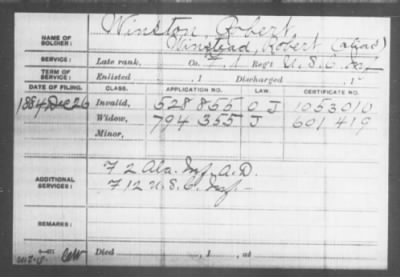 NAME OF SOLDIER: Winston, Robert,
Winstead, Robert (alias)
SERVICE: Late rank, Co. F, 1 Reg't U.S.C. Inf
TERM OF SERVICE: Enlisted , 1 Discharged , 1
DATE OF FILING. CLASS. APPLICATION NO. LAW. CERTIFICATE NO.
1884 Dec 26 Invalid, 528855 O J 1053010
Widow, 794355 J 601419
Minor,
ADDITIONAL SERVICES: F 2 Ala. Inf. A.D.
F 12 U.S.C. Inf.
REMARKS:
Died , 1 , at